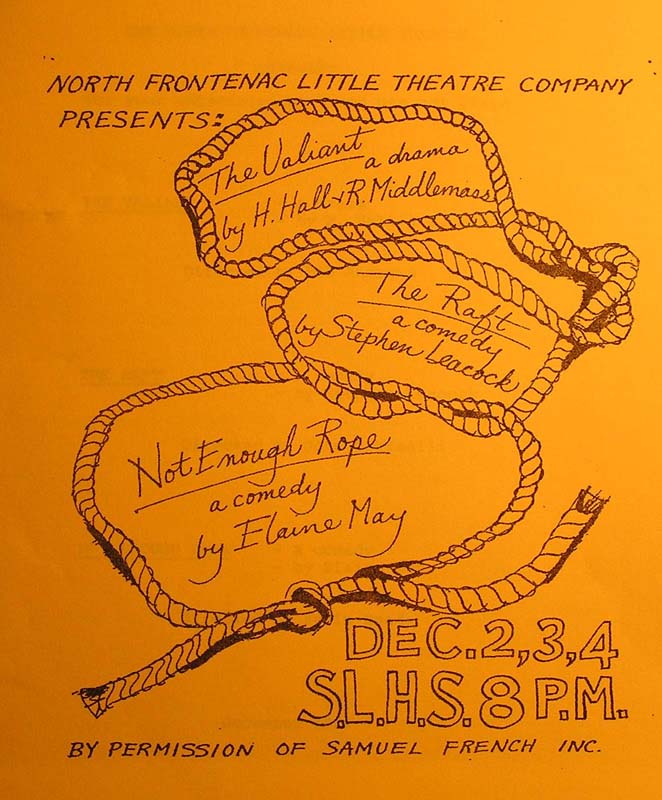 NORTH FRONTENAC LITTLE THEATRE COMPANY
PRESENTS:
The Valiant
a drama
by H. Hall & R. Middlemass
The Raft
a comedy
by Stephen Leacock
Not Enough Rope
a comedy
by Elaine May
DEC. 2, 3, 4
S.L.H.S. 8 P.M.
BY PERMISSION OF SAMUEL FRENCH INC.